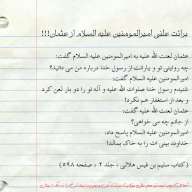 برائت علنی امیرالمومنین علیه السلام از عثمان!!!
عثمان لعنت الله علیه به امیرالمومنین علیه السلام گفت:
چه روایتی تو و یارانت از رسول خدا درباره من می دانید؟
امیرالمومنین علیه السلام گفت:
شنیدم رسول خدا صلوات الله علیه و آله تو را دو بار لعن کرد
و بعد از استغفار هم نکرد!
عثمان لعنت الله علیه گفت:
از جانم چه می خواهی؟
امیرالمومنین علیه السلام پاسخ داد:
خداوند بینی ات را به خاک بمالد!
(کتاب سلیم بن قیس هلالی ، جلد ۲ ، صفحه ۵۹۸)